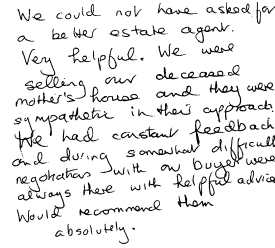 We could not have asked for
a better estate agent.
Very helpful. We were
selling our deceased
mother's house and they were
sympathetic in their approach.
We had constant feedback
and during somewhat difficult
negotiations with our buyer were
always there with helpful advice
Would recommend them
absolutely.